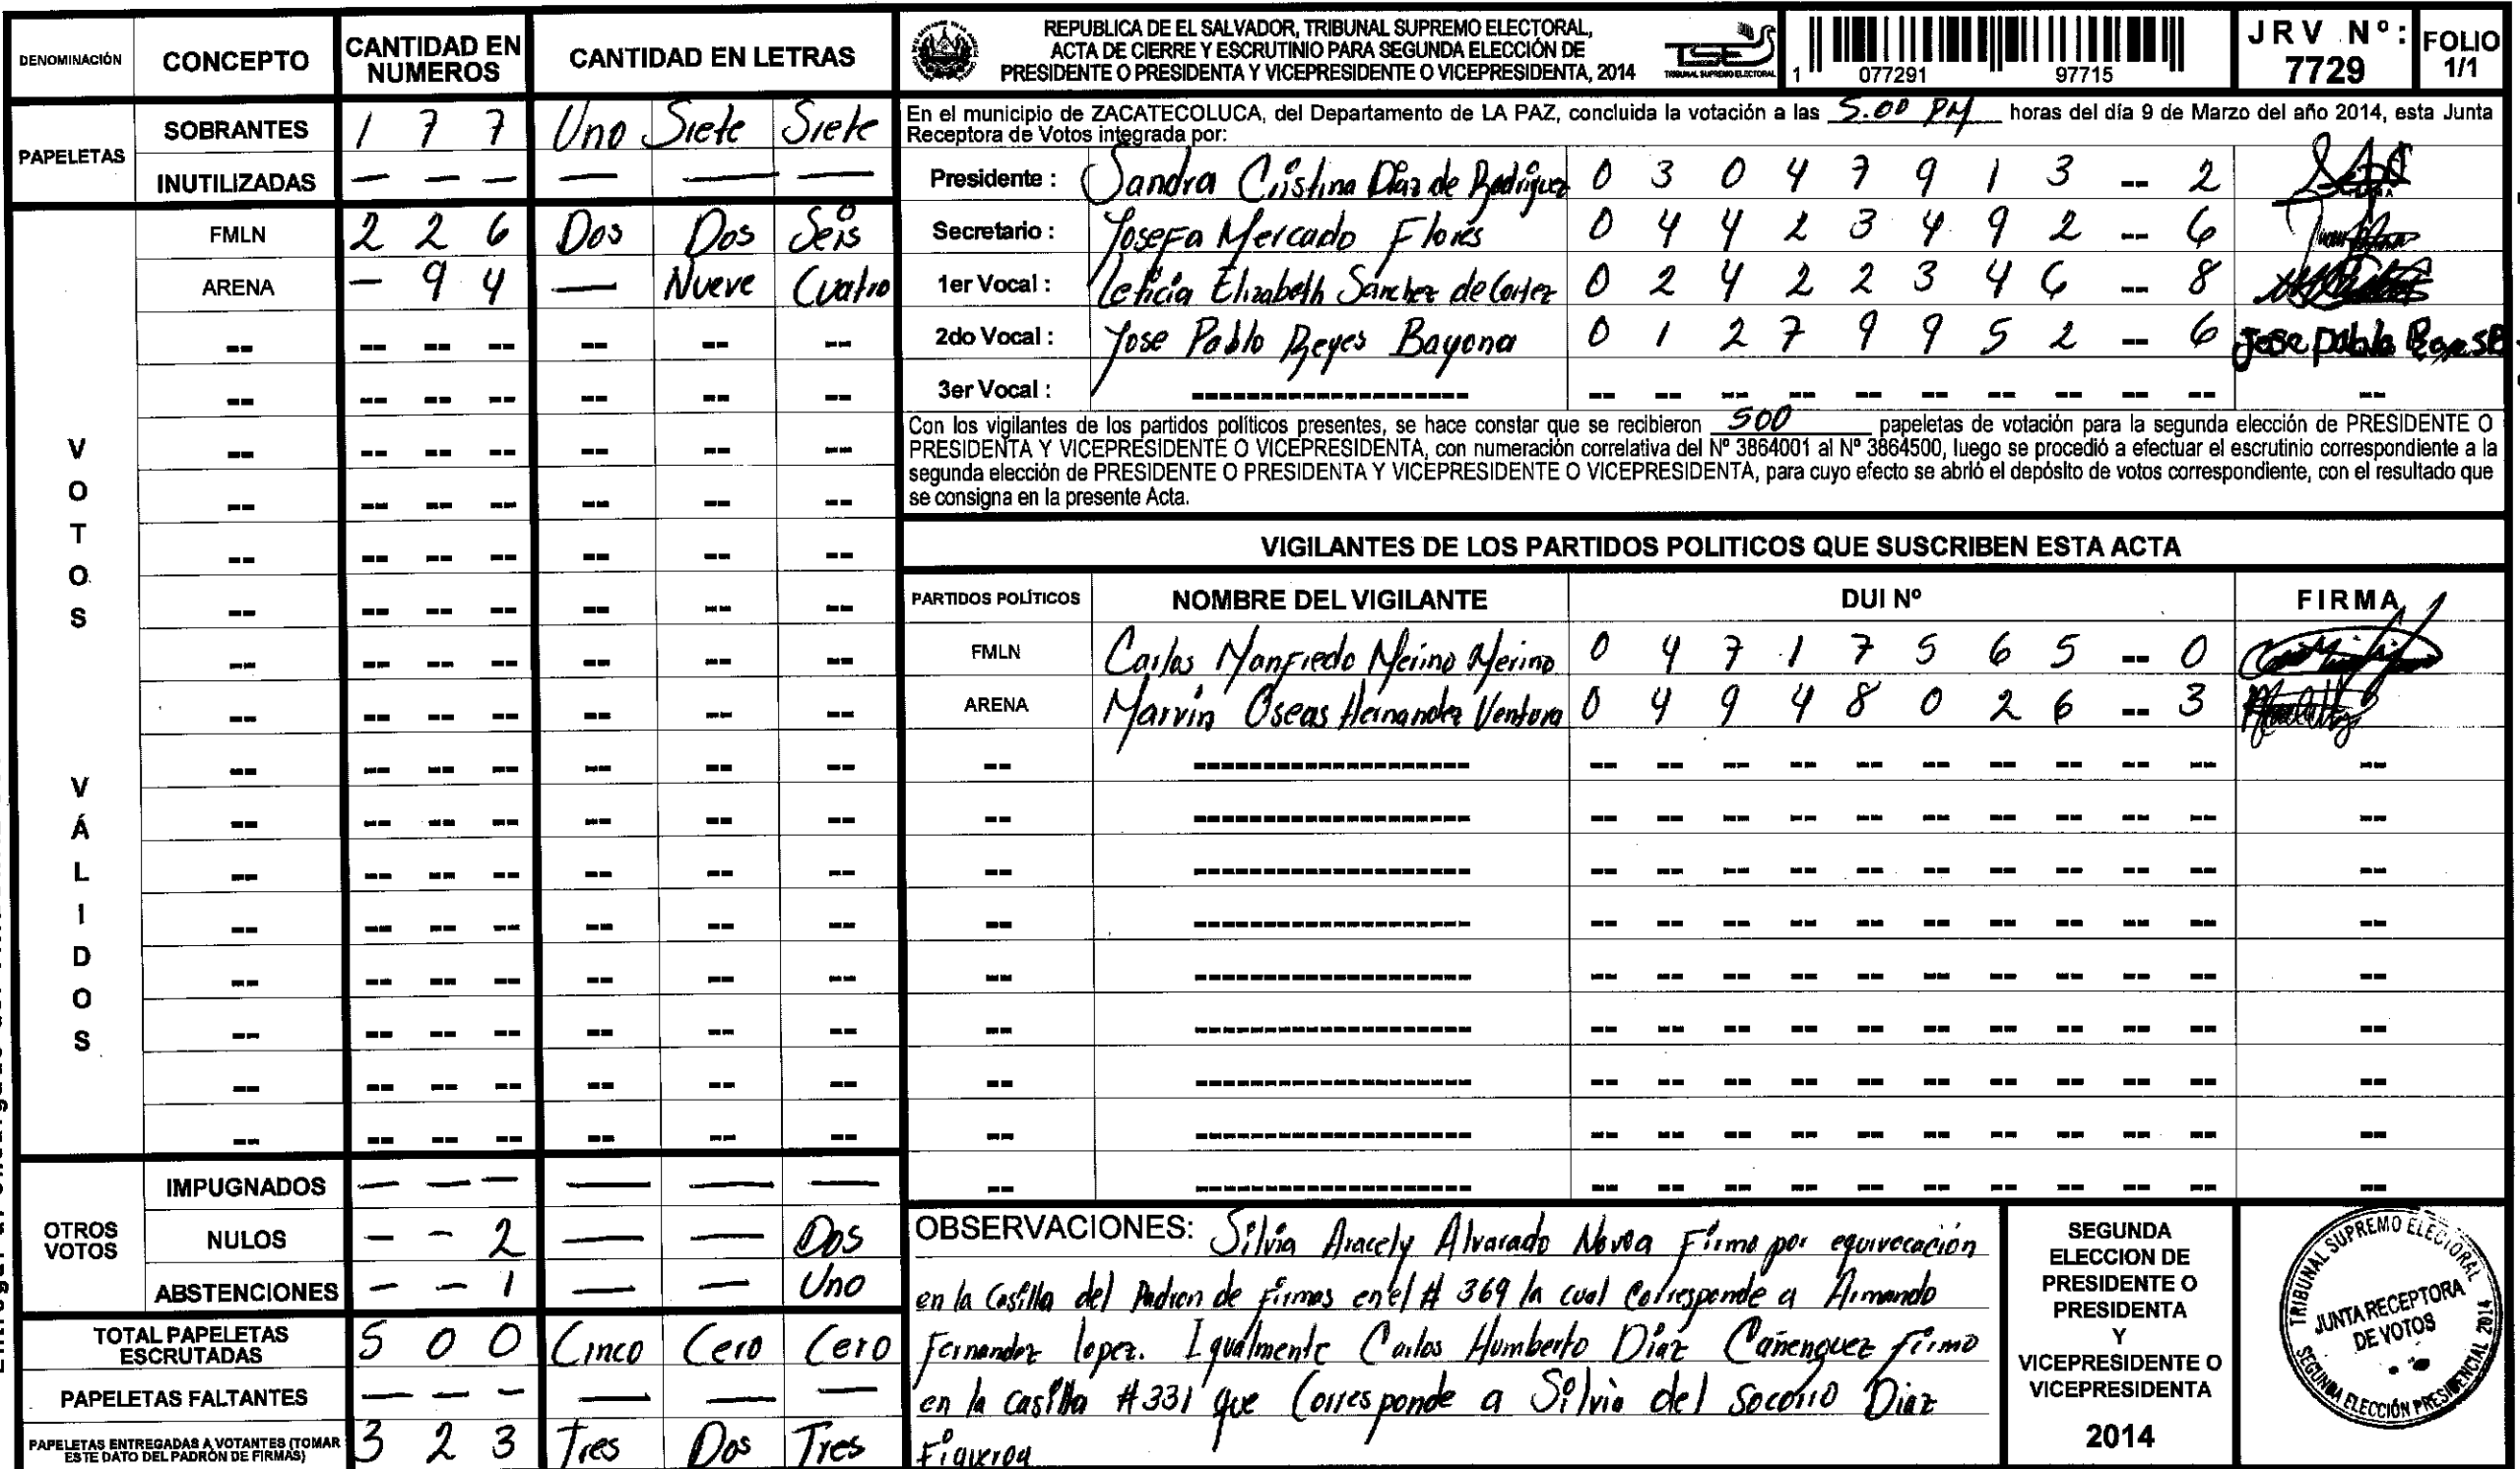 DENOMINACIÓN CONCEPTO CANTIDAD EN NUMEROS CANTIDAD EN LETRAS
PAPELETAS
SOBRANTES 1 7 7 Uno Siete Siete
INUTILIZADAS — — — — — —
VOTOS VÁLIDOS
FMLN 2 2 6 Dos Dos Seis
ARENA — 9 4 — Nueve Cuatro
OTROS VOTOS
IMPUGNADOS — — — — — —
NULOS — — 2 — — Dos
ABSTENCIONES — — 1 — — Uno
TOTAL PAPELETAS ESCRUTADAS 5 0 0 Cinco Cero Cero
PAPELETAS FALTANTES — — — — — —
PAPELETAS ENTREGADAS A VOTANTES (TOMAR ESTE DATO DEL PADRÓN DE FIRMAS) 3 2 3 Tres Dos Tres
REPUBLICA DE EL SALVADOR, TRIBUNAL SUPREMO ELECTORAL,
ACTA DE CIERRE Y ESCRUTINIO PARA SEGUNDA ELECCIÓN DE
PRESIDENTE O PRESIDENTA Y VICEPRESIDENTE O VICEPRESIDENTA, 2014
TSE
TRIBUNAL SUPREMO ELECTORAL
1 077291 97715
JRV Nº: 7729
FOLIO 1/1
En el municipio de ZACATECOLUCA, del Departamento de LA PAZ, concluida la votación a las 5.00 PM horas del día 9 de Marzo del año 2014, esta Junta
Receptora de Votos integrada por:
Presidente : Sandra Cristina Díaz de Rodríguez 0 3 0 4 7 9 1 3 -- 2
Secretario : Josefa Mercado Flores 0 4 4 2 3 4 9 2 -- 6
1er Vocal : Leticia Elizabeth Sánchez de Cortez 0 2 4 2 2 3 4 6 -- 8
2do Vocal : Jose Pablo Reyes Bayona 0 1 2 7 9 9 5 2 -- 6 Jose pablo
3er Vocal :
Con los vigilantes de los partidos políticos presentes, se hace constar que se recibieron 500 papeletas de votación para la segunda elección de PRESIDENTE O
PRESIDENTA Y VICEPRESIDENTE O VICEPRESIDENTA, con numeración correlativa del Nº 3864001 al Nº 3864500, luego se procedió a efectuar el escrutinio correspondiente a la
segunda elección de PRESIDENTE O PRESIDENTA Y VICEPRESIDENTE O VICEPRESIDENTA, para cuyo efecto se abrió el depósito de votos correspondiente, con el resultado que
se consigna en la presente Acta.
VIGILANTES DE LOS PARTIDOS POLITICOS QUE SUSCRIBEN ESTA ACTA
PARTIDOS POLÍTICOS NOMBRE DEL VIGILANTE DUI Nº FIRMA
FMLN Carlos Manfredo Merino Merino 0 4 7 1 7 5 6 5 -- 0
ARENA Marvin Oseas Hernandez Ventura 0 4 9 4 8 0 2 6 -- 3
OBSERVACIONES: Silvia Aracely Alvarado Novoa Firmo por equivocación
en la Casilla del Padron de firmas en el # 369 la cual Corresponde a Armando
Fernandez lopez. Igualmente Carlos Humberto Díaz Cañenguez firmo
en la casilla #331 que Corresponde a Silvia del Socorro Diaz
Figueroa
SEGUNDA
ELECCION DE
PRESIDENTE O
PRESIDENTA
Y
VICEPRESIDENTE O
VICEPRESIDENTA
2014
TRIBUNAL SUPREMO ELECTORAL
JUNTA RECEPTORA
DE VOTOS
SEGUNDA ELECCIÓN PRESIDENCIAL 2014